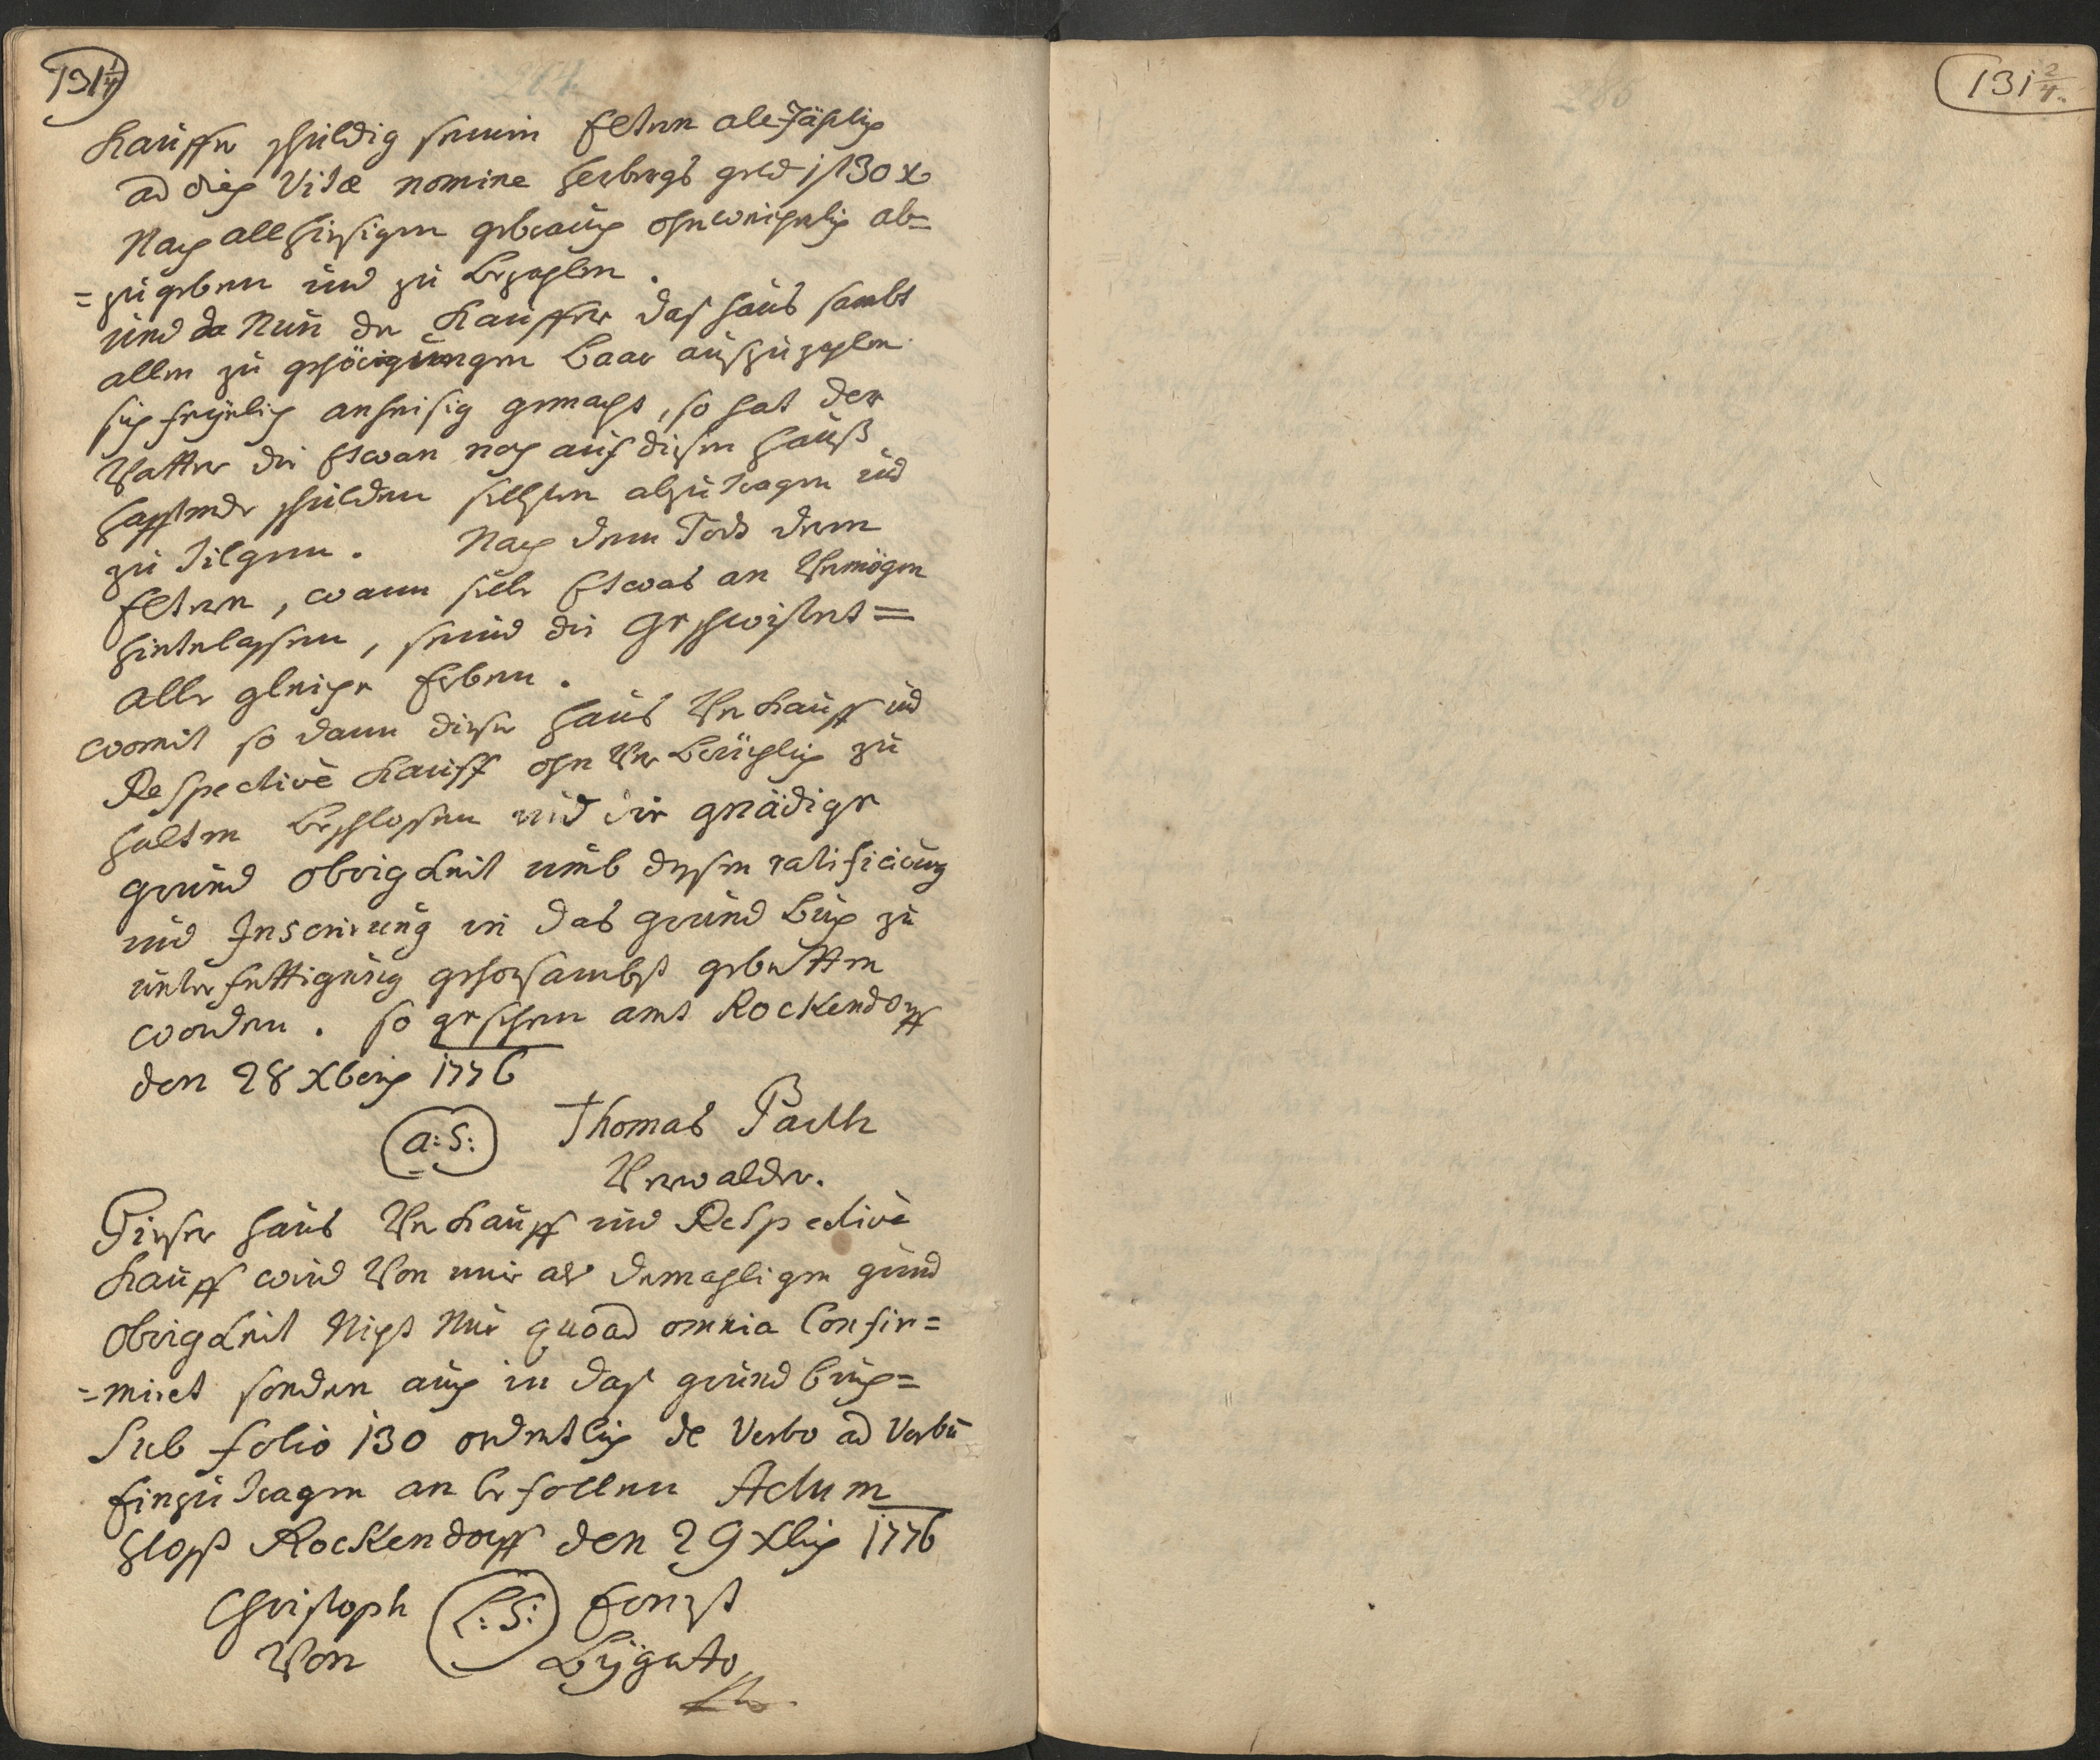 131 1/4
Kauffer schuldig seinen Eltern alljährlich
ad dies Vitæ nomine herbergs geld 1 f 30 x
Nach allhiesigen gebrauch ohnweigerlich ab=
=zugeben und zu bezahlen.
und da Nun der Kauffer das haus sambt
allen zugehörigungen baar auszuzahlen
sich freylich anheisig gemacht, so hat der
Vatter die Etwan noch auf diesen Hauß
hafftende schulden selbsten abzutragen und
zu tilgen. Nach dem Tods deren
Eltern, wann selbe Etwas an Vermögen
hinterlassen, seind die Geschwistert=
alle gleiche Erben.
womit so dann dieser Haus Verkauff und
Respective Kauff ohnverbrüchlich zu
halten beschlossen und die gnädige
grund obrigkeit umb dessen ratificirung
und Inserirung in das grund buch zu
unterfertigung gehorsambst gebetten
worden. so geschehen amt Rockendorff
den 28 Xberis 1776
a:S: Thomas
Verwalder.
Dieser haus Verkauff und Respective
Kauff wird Von mir als dermahligen grund
obrigkeit Nicht Nur quoad omnia Confir=
=miret sondern auch in das grund buch=
Sub folio 130 ordentlich de Verbo ad Verbū
Einzutragen anbefollen Actum
Schloss Rockendorff den 29 Xbris 1776
Christoph L:S: Ernst
Von
131 2/4